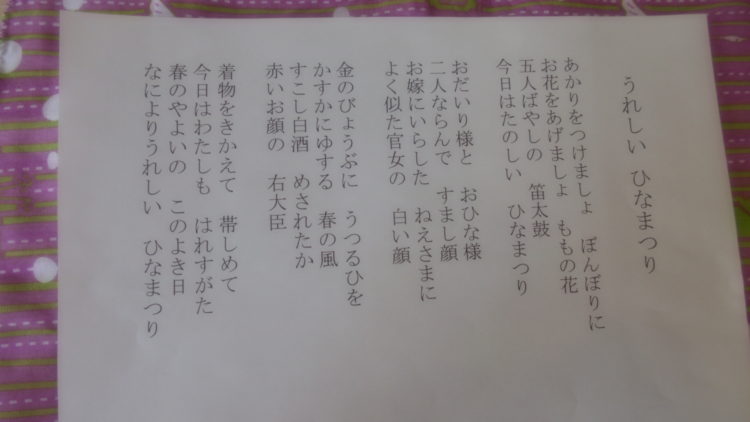 うれしい ひなまつり
あかりをつけましょ ぼんぼりに
お花をあげましょ ももの花
五人ばやしの 笛太鼓
今日はたのしい ひなまつり
おだいり様と おひな様
二人ならんで すまし顔
お嫁にいらした ねえさまに
よく似た官女の 白い顔
金のびょうぶに うつるひを
かすかにゆする 春の風
すこし白酒 めされたか
赤いお顔の 右大臣
着物をきかえて 帯しめて
今日はわたしも はれすがた
春のやよいの このよき日
なによりうれしい ひなまつり